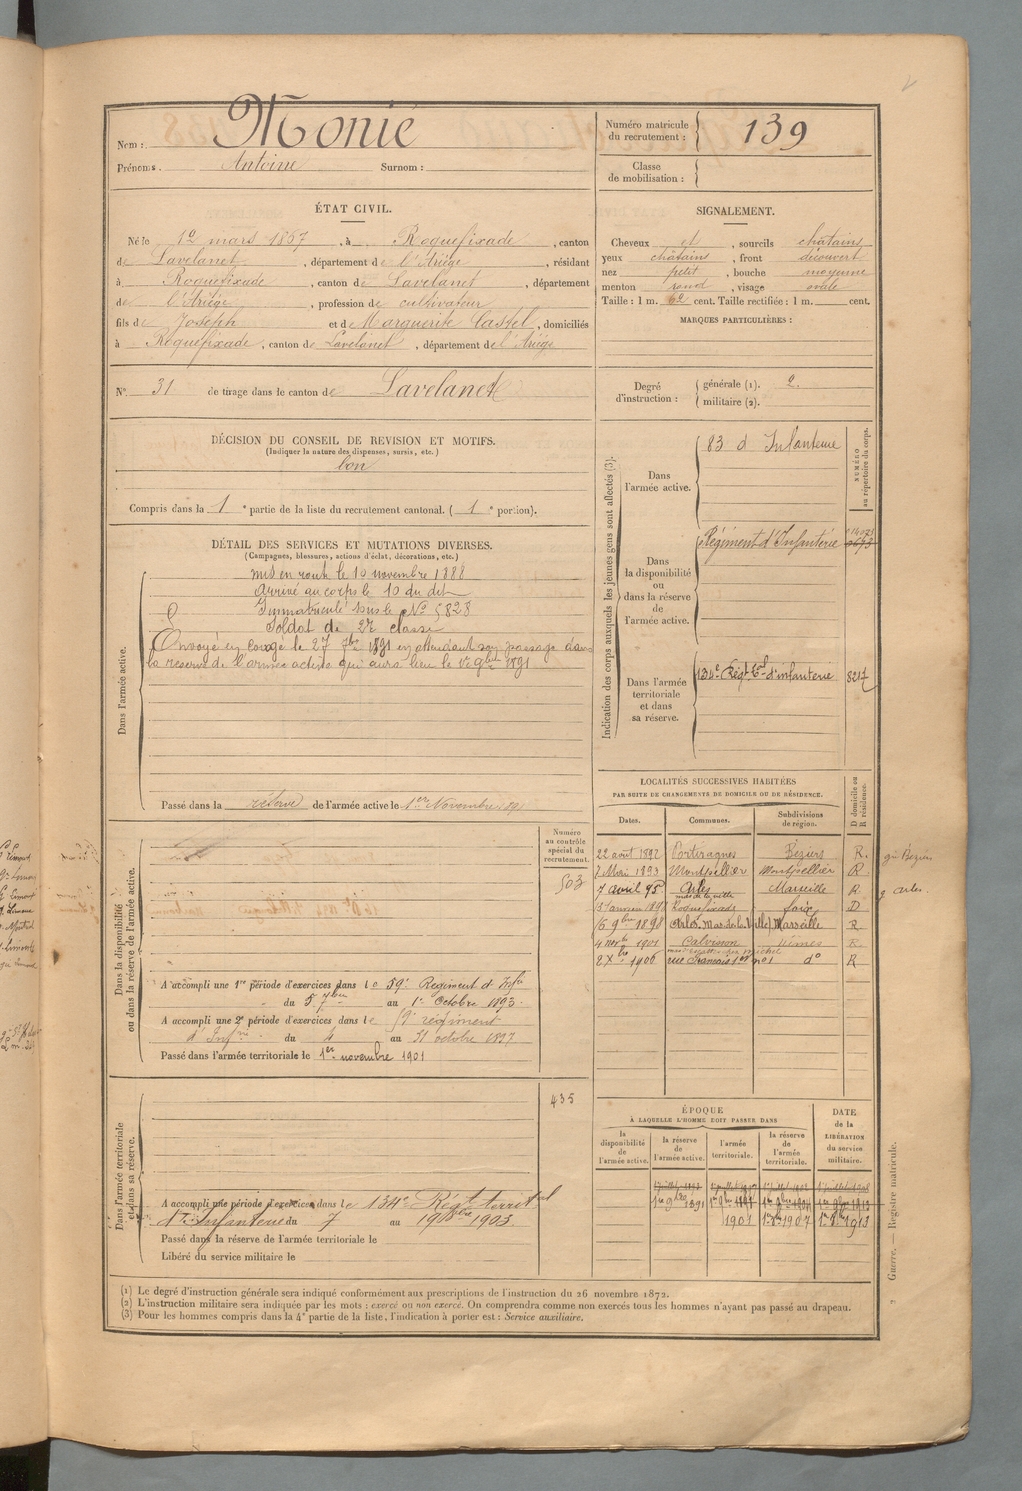 Nom : Monié
Prénoms. Antoine Surnom :
Numéro matricule du recrutement : 139
Classe de mobilisation :
ÉTAT CIVIL.
Né le 12 mars 1867, à Roquefixade, canton
de Lavelanet, département de l'Ariège, résidant
à Roquefixade, canton de Lavelanet, département
de l'Ariège, profession de cultivateur
fils de Joseph et de Marguerite Castel, domiciliés
à Roquefixade, canton de Lavelanet, département de l'Ariège
N° 31 de tirage dans le canton de Lavelanet
SIGNALEMENT.
Cheveux et, sourcils chatains
yeux chatains, front découvert
nez petit, bouche moyenne
menton rond, visage ovale
Taille : 1 m. 62 cent. Taille rectifiée : 1 m. cent.
MARQUES PARTICULIÈRES :
Degré d'instruction : générale (1). 2.
militaire (2).
DÉCISION DU CONSEIL DE REVISION ET MOTIFS.
(Indiquer la nature des dispenses, sursis, etc.)
bon
Compris dans la 1e partie de la liste du recrutement cantonal. (1e portion).
DÉTAIL DES SERVICES ET MUTATIONS DIVERSES.
(Campagnes, blessures, actions d'éclat, décorations, etc.)
Dans l'armée active.
mis en route le 10 novembre 1888
Arrivé au corps le 10 du dit
Immatriculé sous le No 5828
Soldat de 2e classe
Envoyé en congé le 27 7bre 1891 en attendant son passage dans
la réserve de l'armée active qui aura lieu le 1er 9bre 1891
Passé dans la réserve de l'armée active le 1er Novembre 1891
Indication des corps auxquels les jeunes gens sont affectés (3).
NUMÉRO au répertoire du corps.
Dans l'armée active.
83 d'Infanterie
Dans la disponibilité ou dans la réserve de l'armée active.
Régiment d'Infanterie
Dans l'armée territoriale et dans sa réserve.
134e Régt Tal d'infanterie 8217
Dans la disponibilité ou dans la réserve de l'armée active.
Numéro au contrôle spécial du recrutement.
503
A accompli une 1re période d'exercices dans le 59e Régiment d'Infie
du 5 7bre au 1er Octobre 1893
A accompli une 2e période d'exercices dans le 59e régiment
d'Infrie du 4 au 31 octobre 1897
Passé dans l'armée territoriale le 1er novembre 1901
LOCALITÉS SUCCESSIVES HABITÉES
PAR SUITE DE CHANGEMENTS DE DOMICILE OU DE RÉSIDENCE.
Dates. Communes. Subdivisions de région. D domicile ou R résidence.
22 août 1892 Portiragnes Béziers R.
7 Mai 1893 Montpellier Montpellier R
7 avril 95 Arles Marseille R.
Roquefixade Foix D
16 9bre 1898 Arles, Mas de la Ville Marseille R.
4 1901 Calvisson Nimes R.
1906 rue François 1er no 1 do R
gie Béziers
g arles.
Dans l'armée territoriale et dans sa réserve.
435
A accompli une période d'exercices dans le 134e Régt territal
d'Infanterie du 7 au 1903
Passé dans la réserve de l'armée territoriale le
Libéré du service militaire le
ÉPOQUE
À LAQUELLE L'HOMME DOIT PASSER DANS
la disponibilité de l'armée active.
la réserve de l'armée active.
l'armée territoriale.
la réserve de l'armée territoriale.
DATE de la LIBÉRATION du service militaire.
1er 9bre 1891 1er 9bre 1897 1er 9bre 1907 1er 9bre 1913
1901 1907 1913
(1) Le degré d'instruction générale sera indiqué conformément aux prescriptions de l'instruction du 26 novembre 1872.
(2) L'instruction militaire sera indiquée par les mots : exercé ou non exercé. On comprendra comme non exercés tous les hommes n'ayant pas passé au drapeau.
(3) Pour les hommes compris dans la 4e partie de la liste, l'indication à porter est : Service auxiliaire.
Guerre. — Registre matricule.